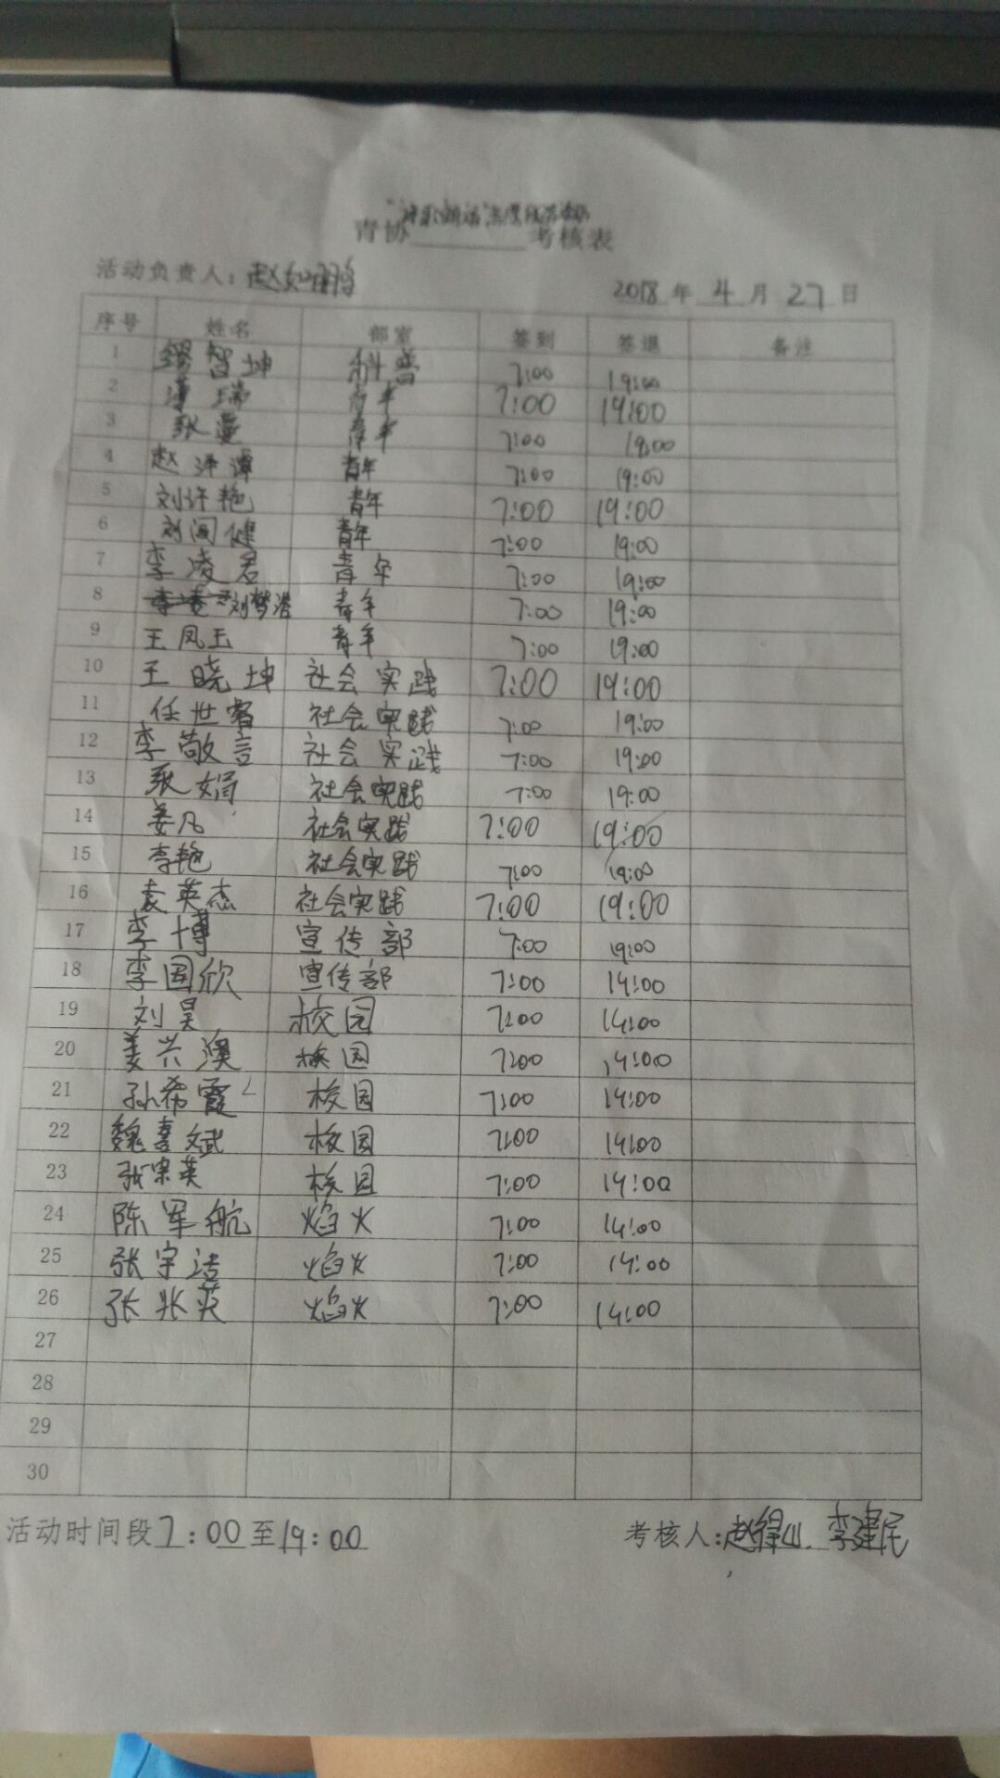 青协 考核表
活动负责人: 赵如鹏
2018 年 4 月 27 日
序号 姓名 部室 签到 签退 备注
1 智坤 科普 7:00 19:00
2 瑞 青年 7:00 19:00
3 张蔓 青年 7:00 19:00
4 赵泽谭 青年 7:00 19:00
5 刘许艳 青年 7:00 19:00
6 刘闯健 青年 7:00 19:00
7 李凌君 青年 7:00 19:00
8 刘梦浩 青年 7:00 19:00
9 王凤玉 青年 7:00 19:00
10 王晓坤 社会实践 7:00 19:00
11 任世睿 社会实践 7:00 19:00
12 李敬言 社会实践 7:00 19:00
13 张娟 社会实践 7:00 19:00
14 姜凡 社会实践 7:00 19:00
15 李艳 社会实践 7:00 19:00
16 袁英杰 社会实践 7:00 19:00
17 李博 宣传部 7:00 19:00
18 李国欣 宣传部 7:00 14:00
19 刘昊 校园 7:00 14:00
20 姜兴澳 校园 7:00 14:00
21 孙希霞 校园 7:00 14:00
22 魏喜斌 校园 7:00 14:00
23 张荣英 校园 7:00 14:00
24 陈军航 焰火 7:00 14:00
25 张宇洁 焰火 7:00 14:00
26 张兆英 焰火 7:00 14:00
27
28
29
30
活动时间段 7:00 至 19:00 考核人: 赵得山. 李建民